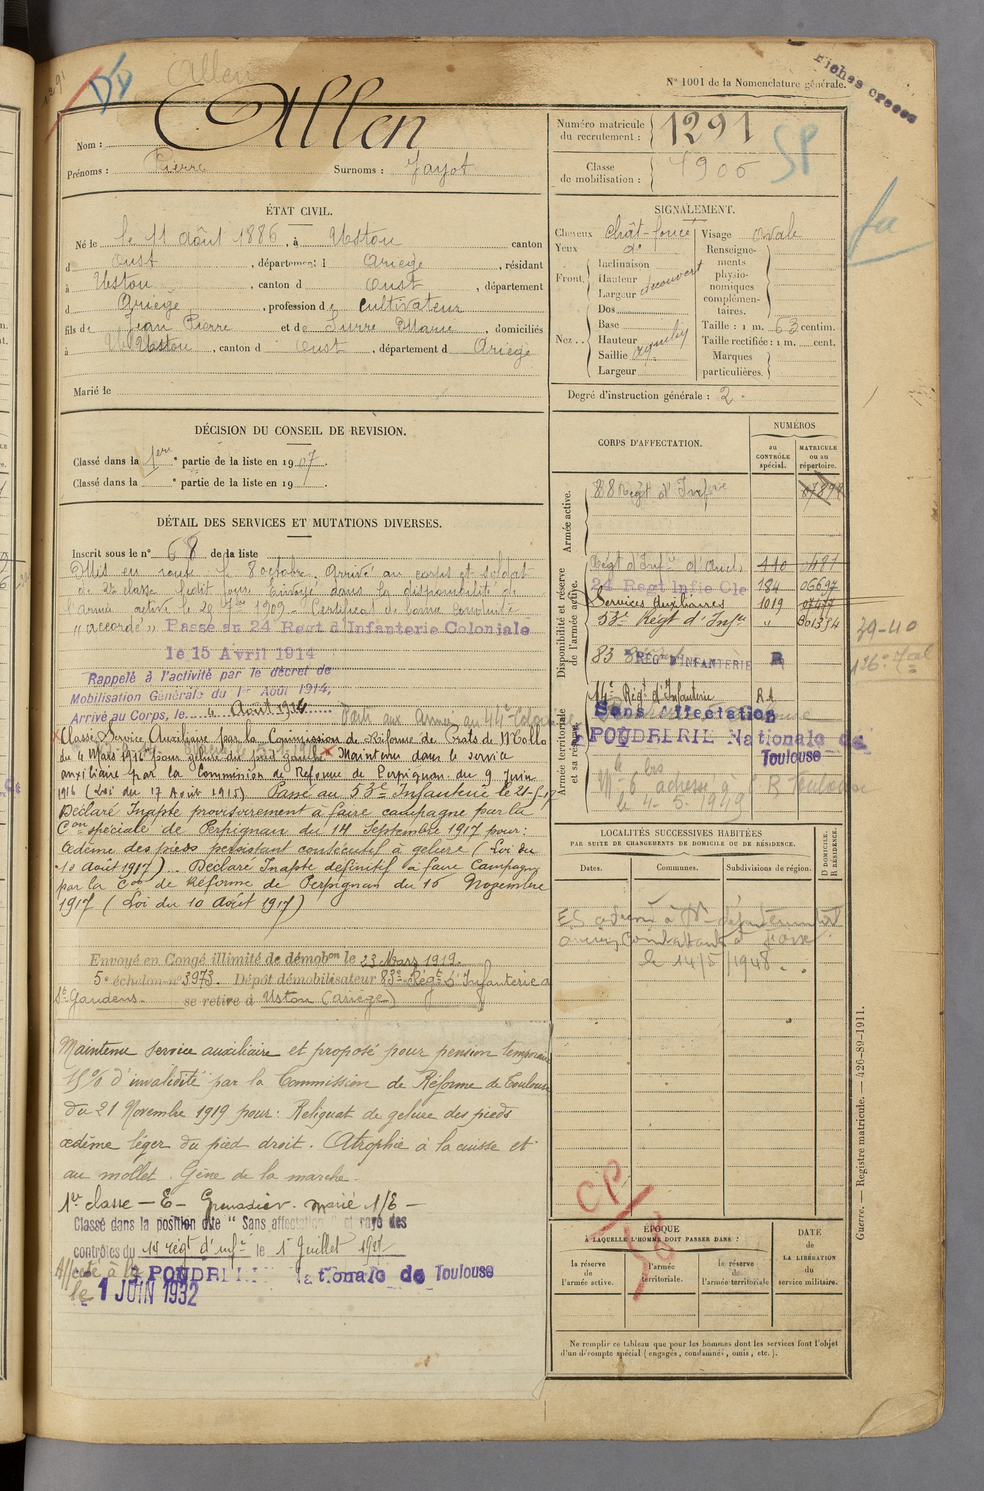 Allen
N° 1001 de la Nomenclature générale.
Fiches creees
Nom : Allen
Prénoms : Pierre Surnoms : Jayot
Numéro matricule du recrutement : 1291
Classe de mobilisation : 1906
SP
ÉTAT CIVIL.
Né le le 11 août 1886, à Ustou canton
d Oust, département d Ariège, résidant
à Ustou, canton d Oust, département
d Ariège, profession de cultivateur
fils de Jean Pierre et de Surre Marie, domiciliés
à Ustou, canton d Oust, département d Ariège
Marié le
SIGNALEMENT.
Cheveux chât-foncé
Yeux d°
Front. Inclinaison
Hauteur
Largeur découvert
Nez.. Dos
Base
Hauteur
Saillie
Largeur
Visage ovale
Renseignements physionomiques complémentaires.
Taille : 1 m. 63 centim.
Taille rectifiée : 1 m. cent.
Marques particulières.
Degré d'instruction générale : 2.
DÉCISION DU CONSEIL DE REVISION.
Classé dans la 1ère partie de la liste en 1907.
Classé dans la e partie de la liste en 19 .
DÉTAIL DES SERVICES ET MUTATIONS DIVERSES.
Inscrit sous le n° 68 de la liste
Mis en route le 8 octobre. Arrivé au corps et soldat
de 2e classe ledit jour. Envoyé dans la disponibilité de
l'armée active le 28 7bre 1909 - Certificat de bonne conduite
"accordé" Passé au 24 Regt d'Infanterie Coloniale
le 15 Avril 1914
Rappelé à l'activité par le décret de
Mobilisation Générale du 1er Août 1914,
Arrivé au Corps, le 4 Août 1914 Parti aux Armées au 44e Colonial
Classé Service Auxiliaire par la Commission de Réforme de Prats de Mollo
du 4 Mars 1916 pour gelure du pied gauche Maintenu dans le service
auxiliaire par la Commission de Réforme de Perpignan du 9 Juin
1916 (Loi du 17 Août 1915) Passé au 53e Infanterie le 21-5-17
Déclaré Inapte provisoirement à faire campagne par la
Con spéciale de Perpignan du 14 Septembre 1917 pour:
œdème des pieds persistant consécutif à gelure (Loi du
10 Août 1917). Déclaré Inapte définitif à faire Campagne
par la Con de Réforme de Perpignan du 16 Novembre
1917 (Loi du 10 Août 1917)
Envoyé en Congé illimité de démobon le 23 Mars 1919.
5e échelon n° 3973. Dépôt démobilisateur 83e Régt d'Infanterie à
St Gaudens. se retire à Ustou (Ariège)
Maintenu service auxiliaire et proposé pour pension temporaire
15% d'invalidité par la Commission de Réforme de Toulouse
du 21 Novembre 1919 pour: Reliquat de gelure des pieds
œdème léger du pied droit. Atrophie à la cuisse et
au mollet. Gêne de la marche.
1re classe - E - Grenadier. marié 1/E -
Classé dans la position dite "Sans affectation" et rayé des
contrôles du 14 régt d'infie le 1er Juillet
Affecté à la POUDRERIE Nationale de Toulouse
le 1 JUIN 1932
CORPS D'AFFECTATION.
NUMÉROS
au CONTRÔLE spécial.
MATRICULE ou au répertoire.
Armée active.
88 Régt d'Infrie 07894
Disponibilité et réserve de l'armée active.
Régt d'Infie d'Auch 440 0481
24 Regt Infie Cle 184 06697
Services Auxiliaires 1019
53e Régt d'Infie " 301354
83 REG D'INFANTERIE R
Armée territoriale et sa réserve.
14e Régt d'Infanterie
Sans Affectation
POUDRERIE Nationale de
Toulouse
adressé à R Toulouse
le 4-5-1949
39-40
LOCALITÉS SUCCESSIVES HABITÉES
PAR SUITE DE CHANGEMENTS DE DOMICILE OU DE RÉSIDENCE.
Dates.
Communes.
Subdivisions de région.
D DOMICILE.
R RÉSIDENCE.
ES adressé à départemental
anciens Combattants à Foix
le 14/5/1948
CP
ÉPOQUE
À LAQUELLE L'HOMME DOIT PASSER DANS :
la réserve de l'armée active.
l'armée territoriale.
la réserve de l'armée territoriale
DATE de LA LIBÉRATION du service militaire.
Ne remplir ce tableau que pour les hommes dont les services font l'objet
d'un décompte spécial (engagés, condamnés, omis, etc.).
Guerre. — Registre matricule. — 426-89-1911.